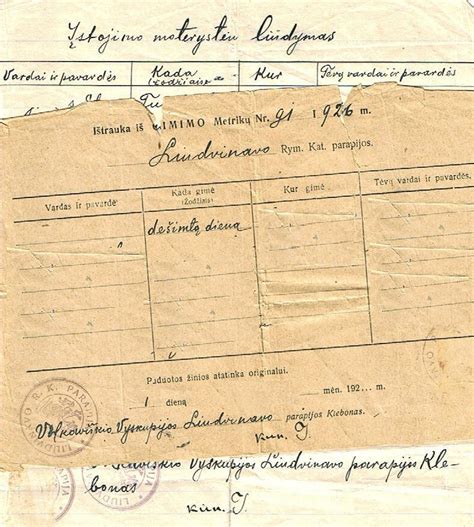 Įstojimo moterystėn liūdymas
Vardai ir pavardės Kada (žodžiais) Kur Tėvų vardai ir pavardės
Ištrauka iš GIMIMO Metrikų Nr. 91 1926 m.
Liudvinavo Rym. Kat. parapijos.
Vardas ir pavardė Kada gimė (Žodžiais) Kur gimė Tėvų vardai ir pavardė
dešimtą dieną
Paduotos žinios atatinka originalui.
1 dieną mėn. 192 m.
Vilkaviškio Vyskupijos Liudvinavo parapijos Klebonas.
kun. J.
Vyskupijos Liudvinavo parapijos Kle-
bonas
kun. J.